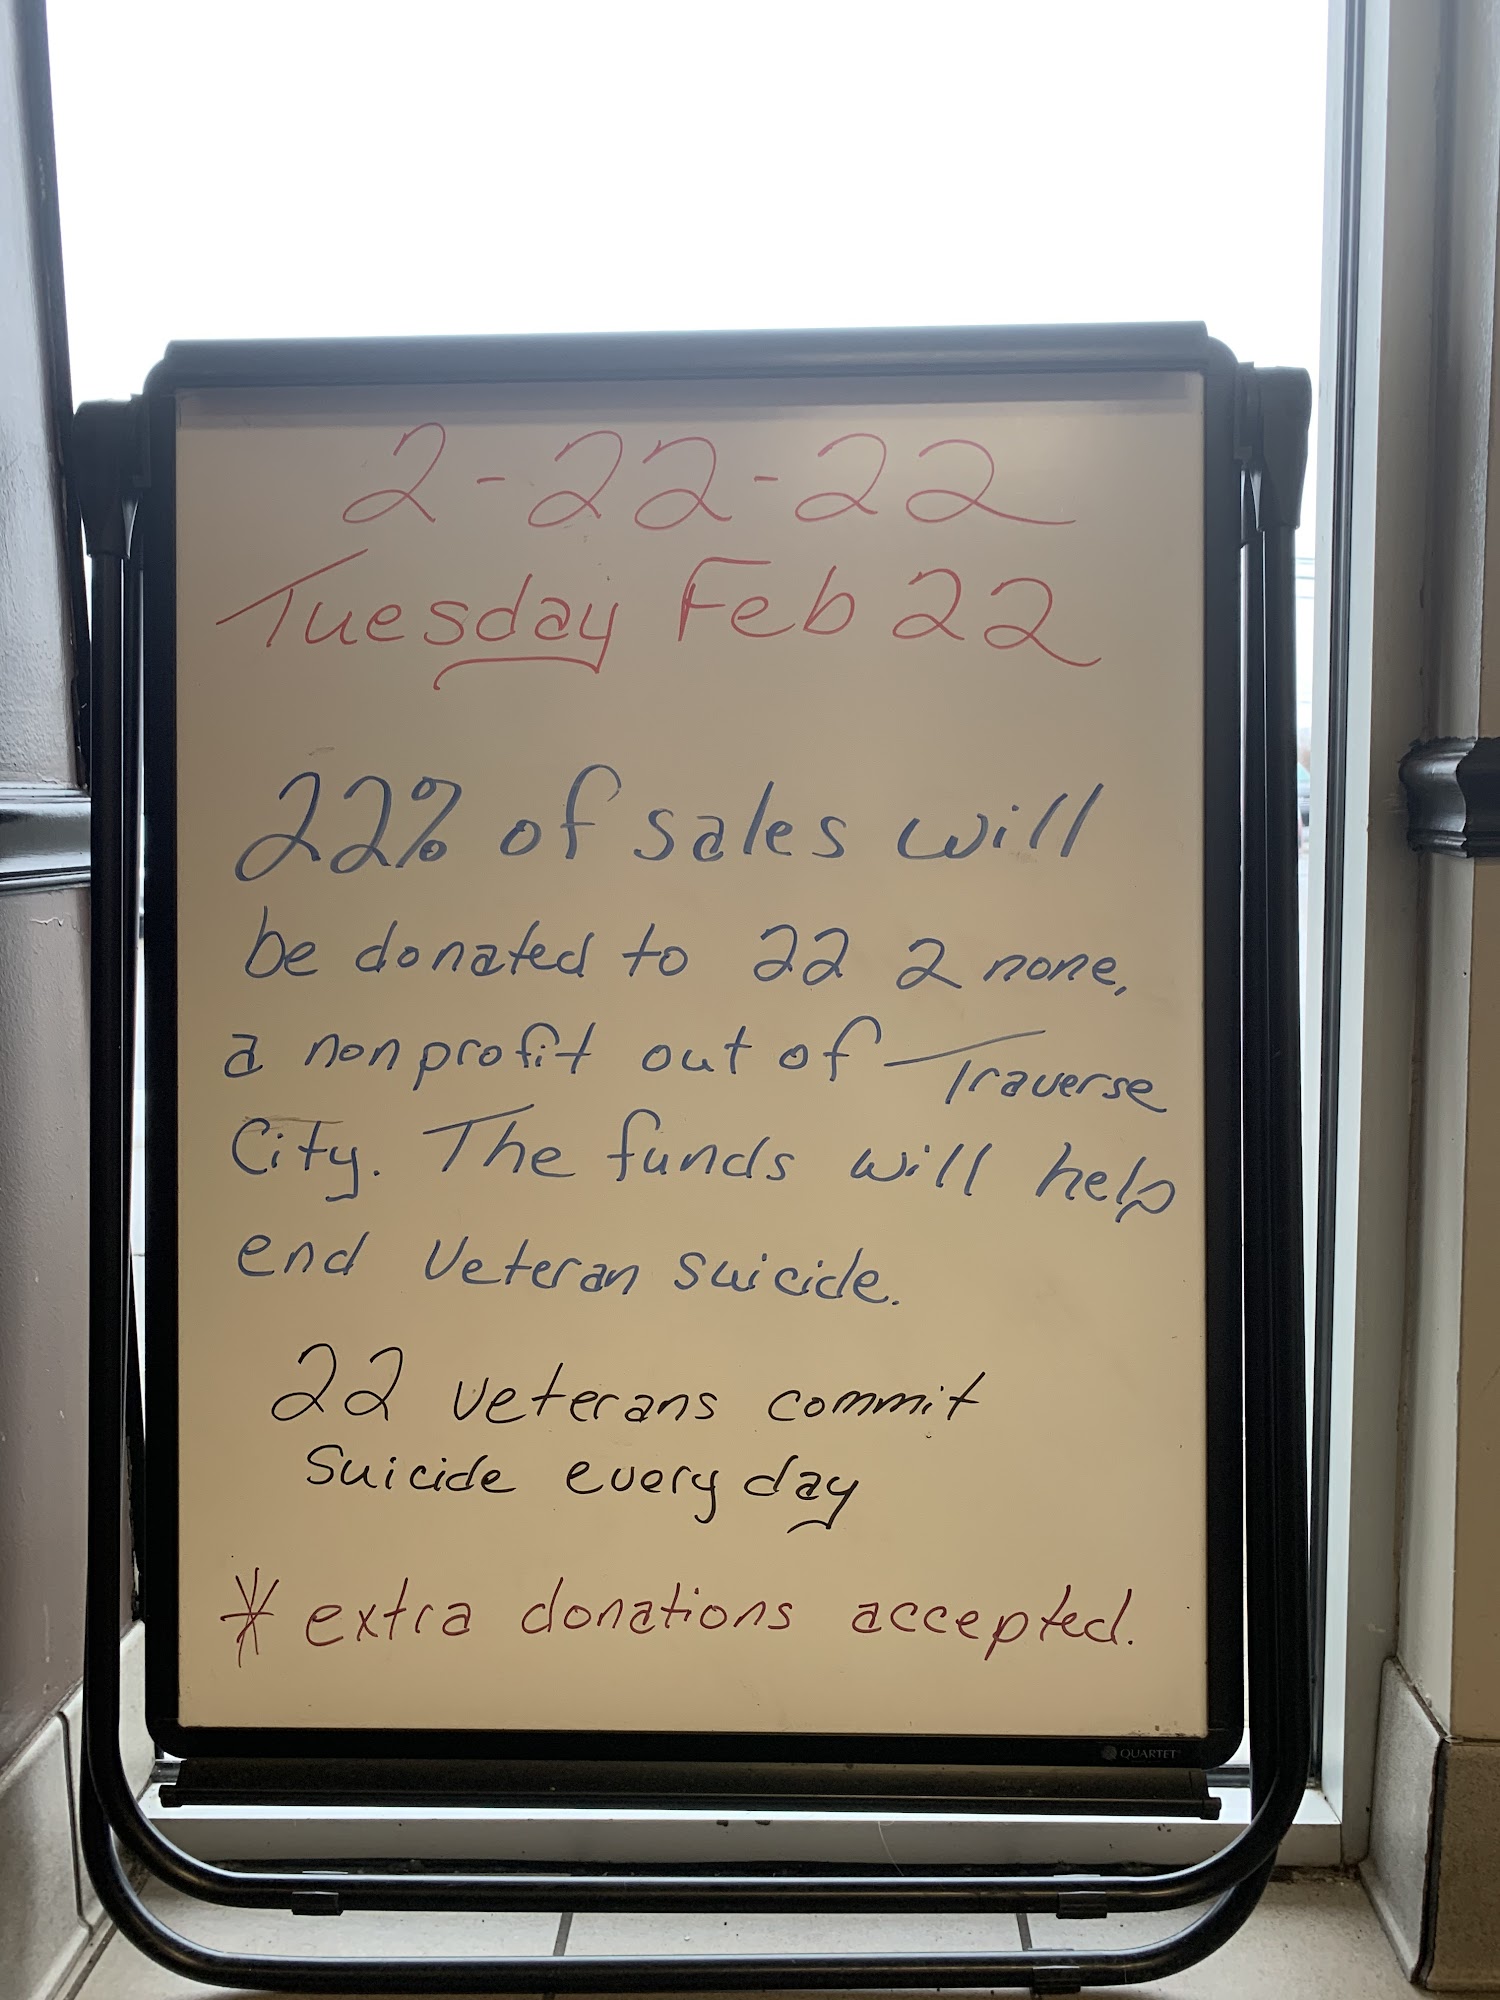 2-22-22
Tuesday Feb 22
22% of sales will
be donated to 22 2 none,
a nonprofit out of Traverse
City. The funds will help
end Veteran suicide.
22 veterans commit
Suicide every day
* extra donations accepted.
QUARTET